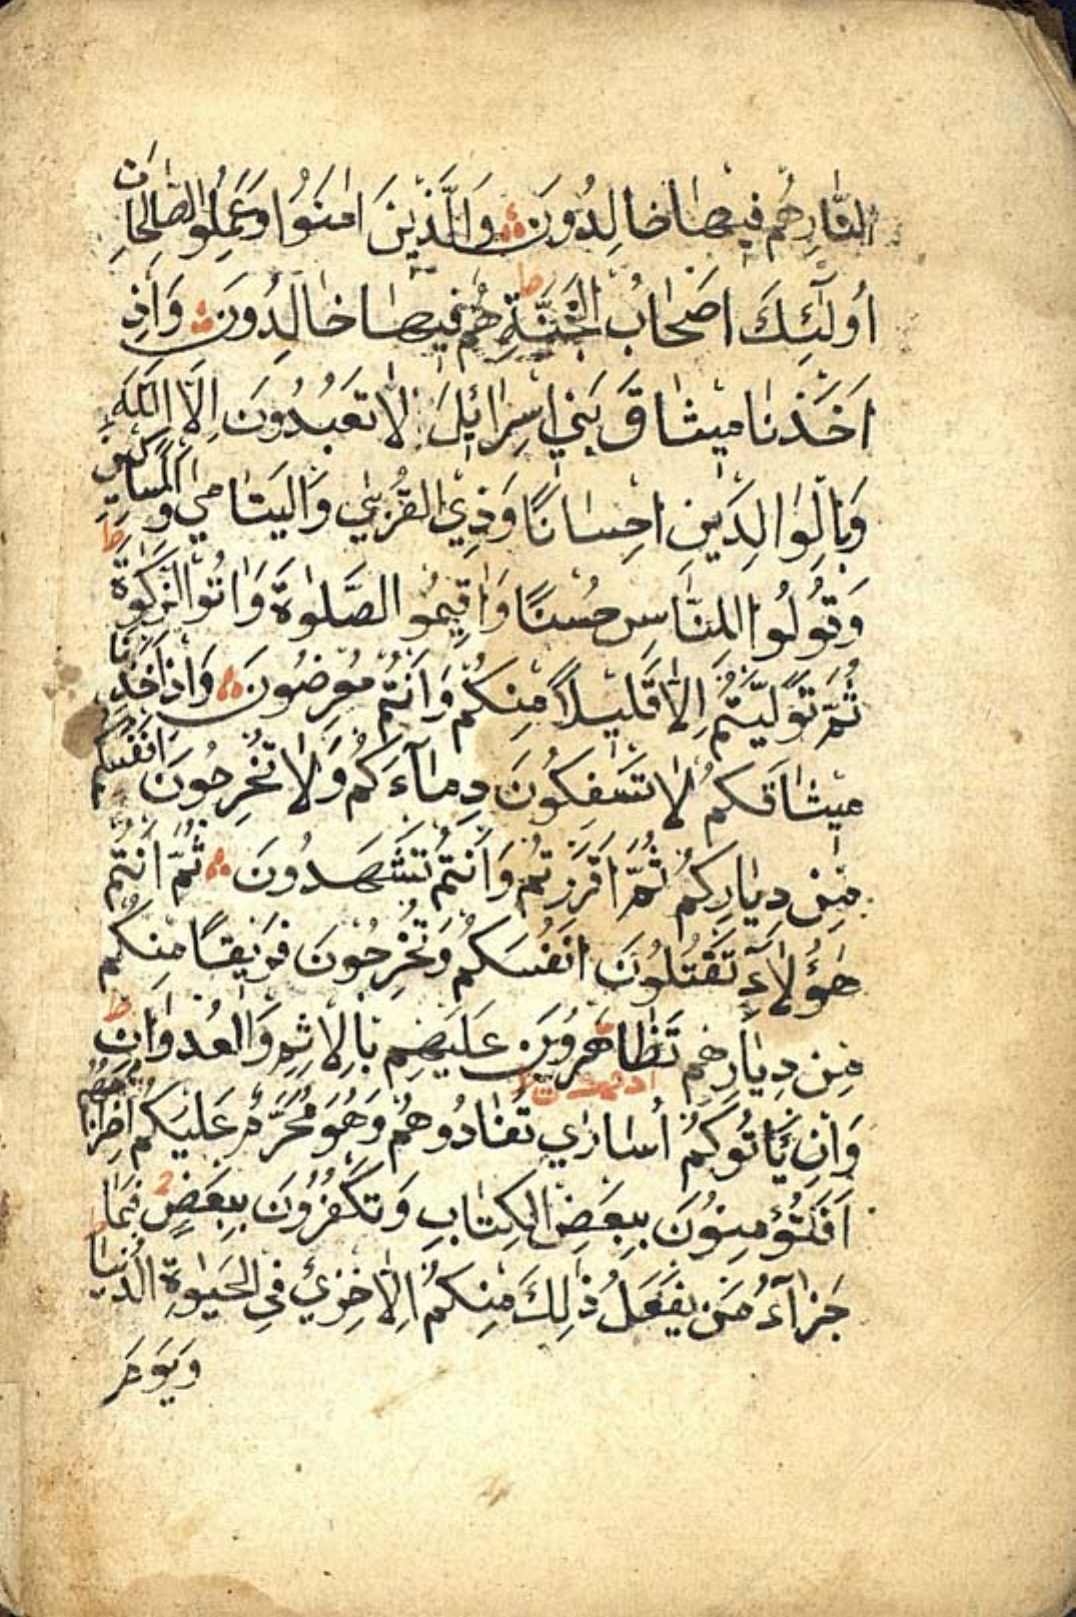 النَّارِ هُمْ فِيهَا خَالِدُونَ وَالَّذِينَ امَنُوا وَعَمِلُوا الصَّالِحَاتِ
اُولَٓئِكَ اَصْحَابُ الْجَنَّةِ هُمْ فِيهَا خَالِدُونَ وَاِذْ
اَخَذْنَا مِيثَاقَ بَنِي اِسْرَائِلَ لَا تَعْبُدُونَ اِلَّا اللَّهَ
وَبِالْوَالِدَيْنِ اِحْسَانًا وَذِي الْقُرْبَي وَالْيَتَامَي وَالْمَسَاكِينِ
وَقُولُوا لِلنَّاسِ حُسْنًا وَاَقِيمُو الصَّلٰوةَ وَاٰتُوا الزَّكٰوةَ
ثُمَّ تَوَلَّيْتُمْ اِلَّا قَلِيلًا مِنْكُمْ وَاَنْتُمْ مُعْرِضُونَ وَاِذْ اَخَذْنَا
مِيثَاقَكُمْ لَا تَسْفِكُونَ دِمَآءَكُمْ وَلَا تُخْرِجُونَ اَنْفُسَكُمْ
مِنْ دِيَارِكُمْ ثُمَّ اَقْرَرْتُمْ وَاَنْتُمْ تَشْهَدُونَ ثُمَّ اَنْتُمْ
هَٓؤُلَآءِ تَقْتُلُونَ اَنْفُسَكُمْ وَتُخْرِجُونَ فَرِيقًا مِنْكُمْ
مِنْ دِيَارِهِمْ تَظَاهَرُونَ عَلَيْهِمْ بِالْاِثْمِ وَالْعُدْوَانِ
وَاِنْ يَأْتُوكُمْ اُسَارَي تُفَادُوهُمْ وَهُوَ مُحَرَّمٌ عَلَيْكُمْ اِخْرَاجُهُمْ
اَفَتُؤْمِنُونَ بِبَعْضِ الْكِتَابِ وَتَكْفُرُونَ بِبَعْضٍ فَمَا
جَزَآءُ مَنْ يَفْعَلُ ذٰلِكَ مِنْكُمْ اِلَّا خِزْيٌ فِي الْحَيٰوةِ الدُّنْيَا
وَيَوْمَ